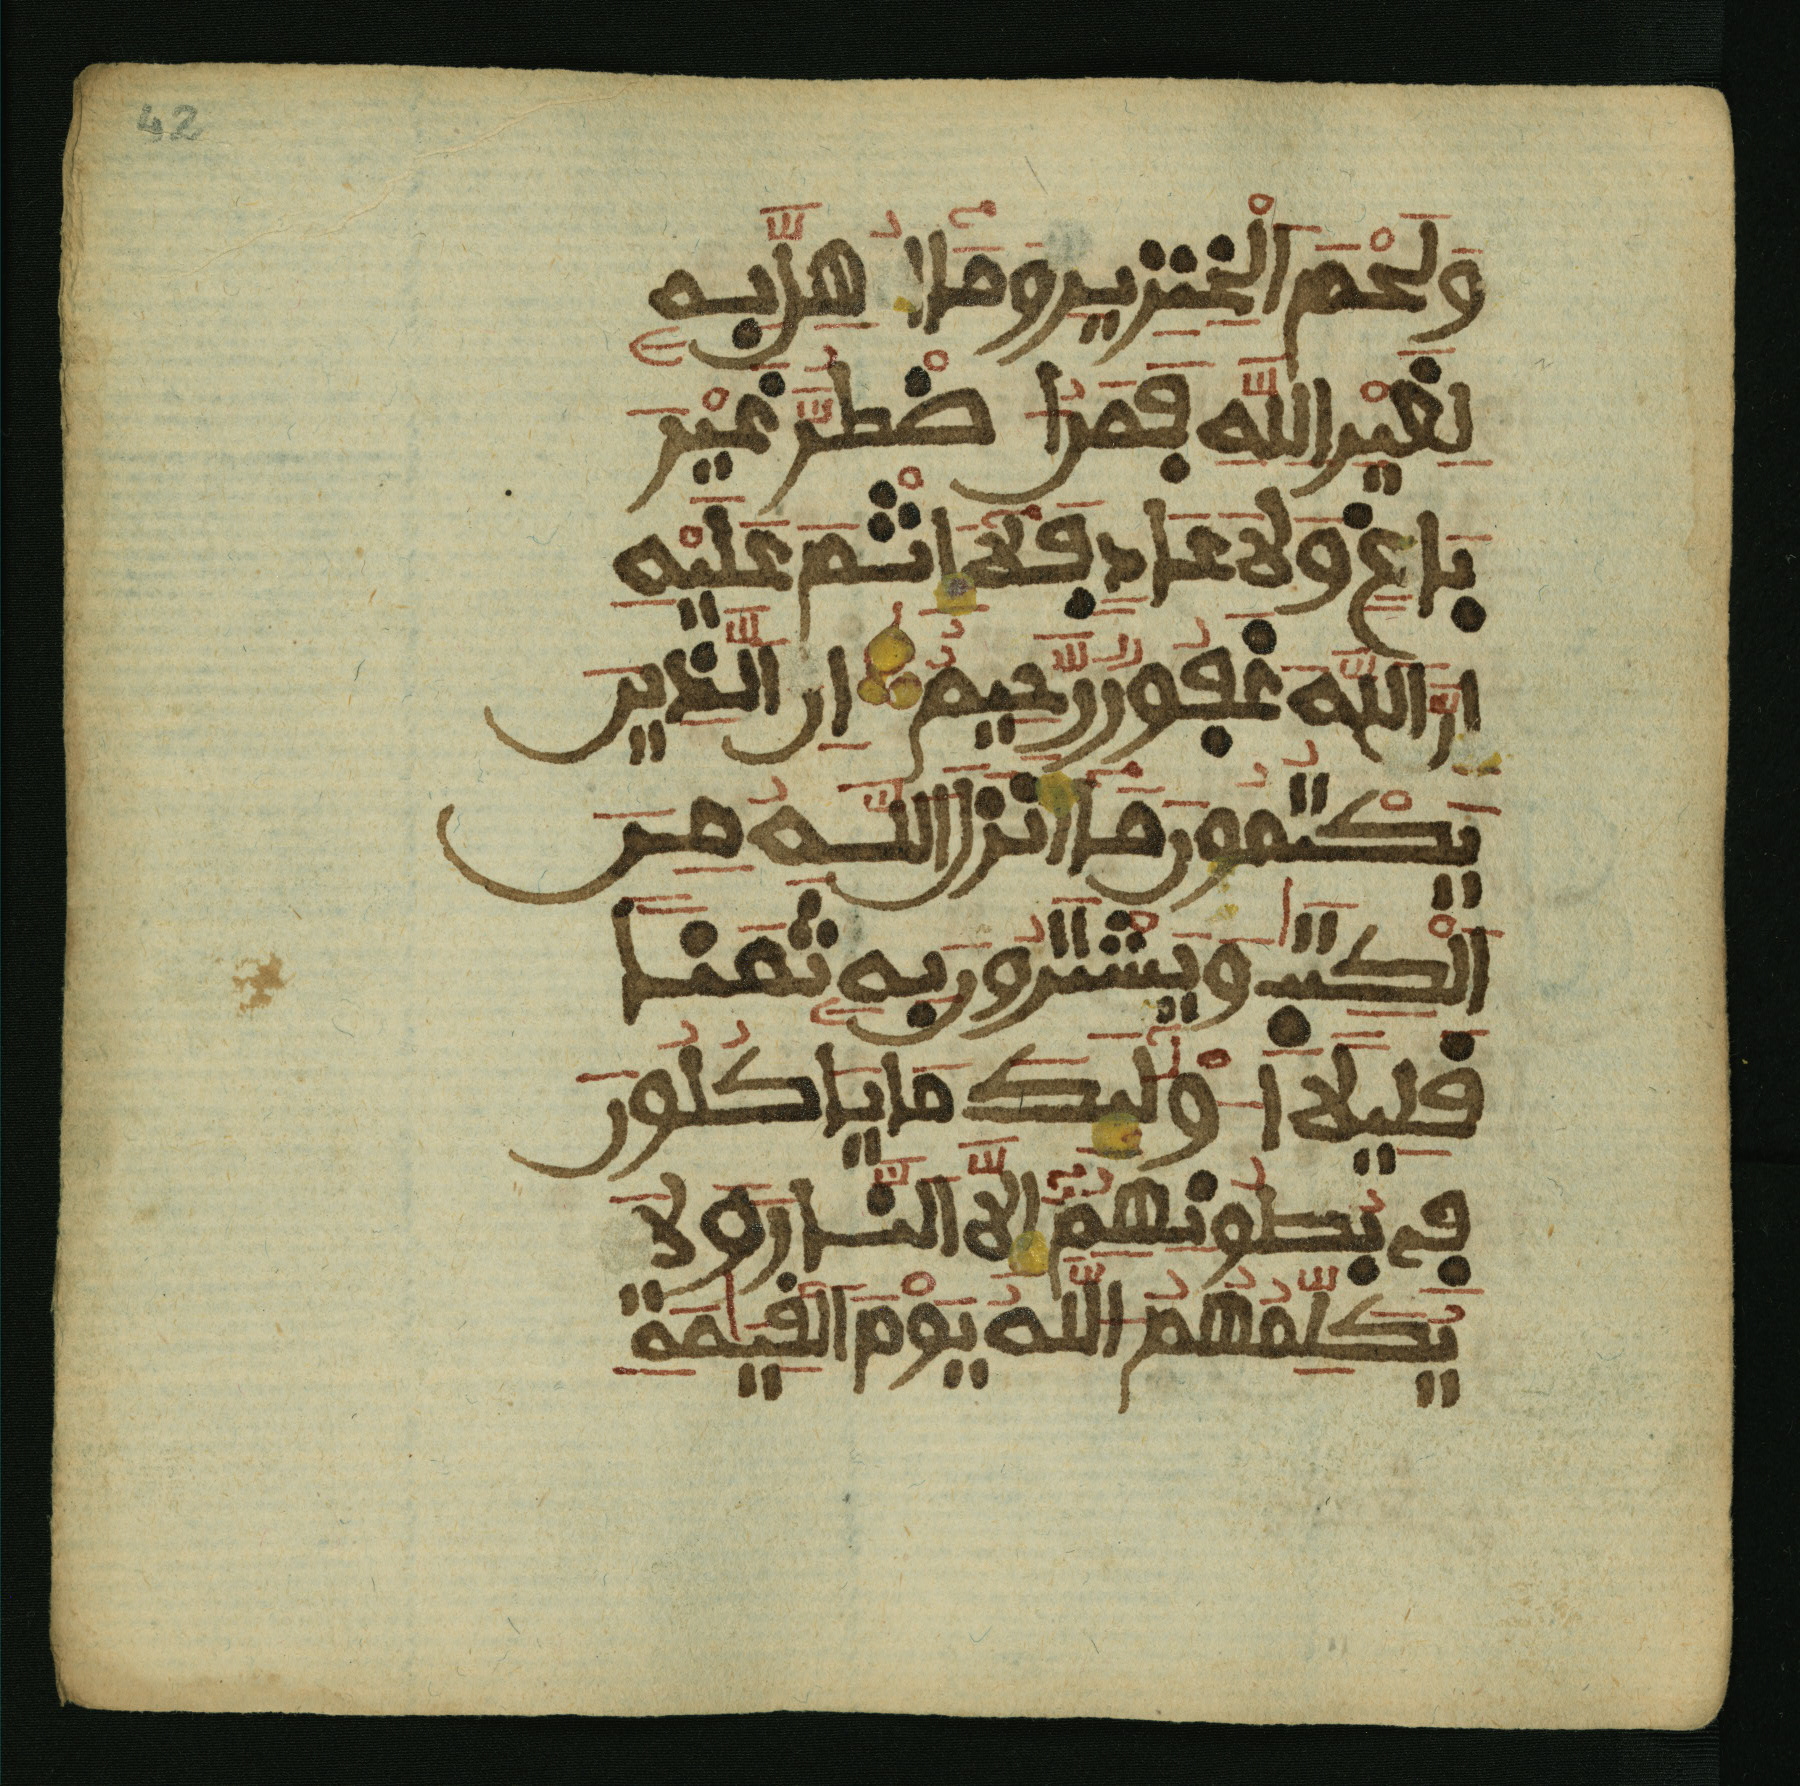 42
وَلَحْمَ الْخِنزِيرِ وَمَا أُهِلَّ بِهِ
لِغَيْرِ اللَّهِ فَمَنُ اضْطُرَّ غَيْرَ
بَاغٍ وَلَا عَادٍ فَلَا إِثْمَ عَلَيْهِ
إِنَّ اللَّهَ غَفُورٌ رَّحِيمٌ إِنَّ الَّذِينَ
يَكْتُمُونَ مَا أَنزَلَ اللَّهُ مِنَ
الْكِتَٰبِ وَيَشْتَرُونَ بِهِ ثَمَنًا
قَلِيلًا أُوْلَٰئِكَ مَا يَاكُلُونَ
فِي بُطُونِهِمُ إِلَّا النَّارَ وَلَا
يُكَلِّمُهُمُ اللَّهُ يَوْمَ الْقِيَٰمَةِ